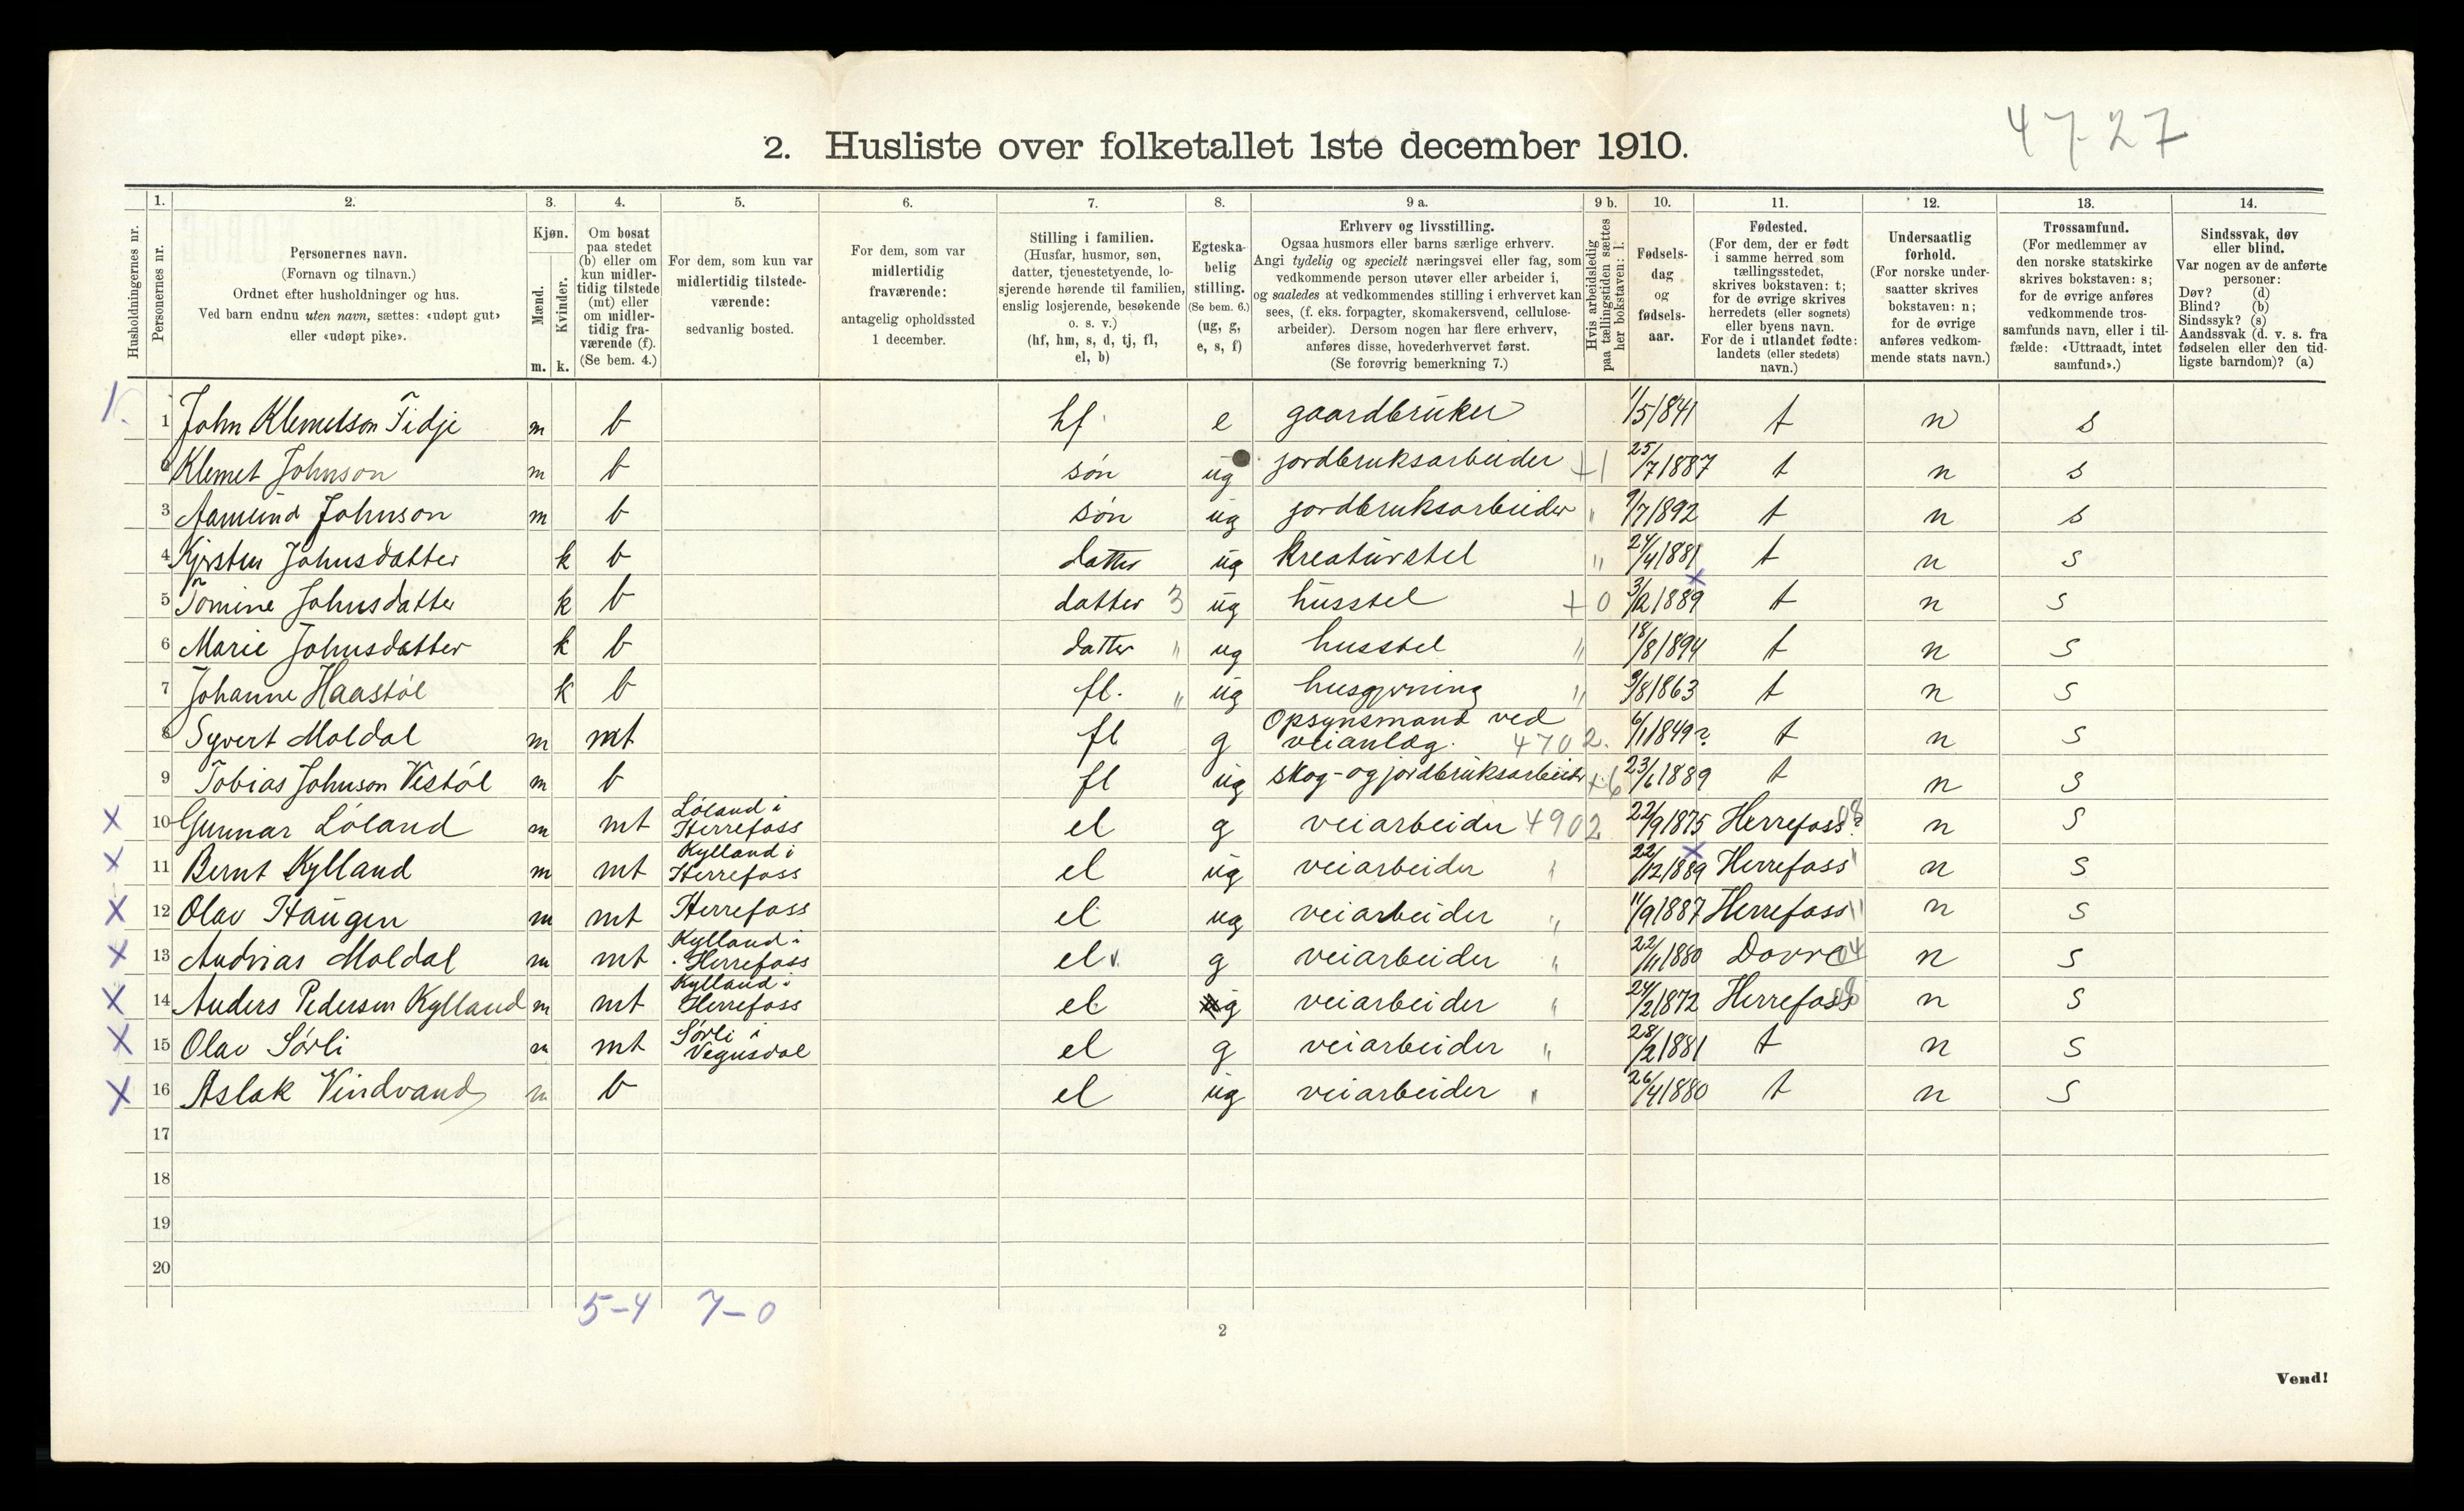 47-27
2. Husliste over folketallet 1ste december 1910.
Husholdningernes nr.
1.
Personernes nr.
2.
Personernes navn.
(Fornavn og tilnavn.)
Ordnet efter husholdninger og hus.
Ved barn endnu uten navn, sættes: «udøpt gut»
eller «udøpt pike».
3.
Kjøn.
Mænd.
Kvinder.
m. k.
4.
Om bosat
paa stedet
(b) eller om
kun midler-
tidig tilstede
(mt) eller
om midler-
tidig fra-
værende (f).
(Se bem. 4.)
5.
For dem, som kun var
midlertidig tilstede-
værende:
sedvanlig bosted.
6.
For dem, som var
midlertidig
fraværende:
antagelig opholdssted
1 december.
7.
Stilling i familien.
(Husfar, husmor, søn,
datter, tjenestetyende, lo-
sjerende hørende til familien,
enslig losjerende, besøkende
o. s. v.)
(hf, hm, s, d, tj, fl,
el, b)
8.
Egteska-
belig
stilling.
(Se bem. 6.)
(ug, g,
e, s, f)
9 a.
Erhverv og livsstilling.
Ogsaa husmors eller barns særlige erhverv.
Angi tydelig og specielt næringsvei eller fag, som
vedkommende person utøver eller arbeider i,
og saaledes at vedkommendes stilling i erhvervet kan
sees, (f. eks. forpagter, skomakersvend, cellulose-
arbeider). Dersom nogen har flere erhverv,
anføres disse, hovederhvervet først.
(Se forøvrig bemerkning 7.)
9 b.
Hvis arbeidsledig
paa tællingstiden sættes
her bokstaven: l.
10.
Fødsels-
dag
og
fødsels-
aar.
11.
Fødested.
(For dem, der er født
i samme herred som
tællingsstedet,
skrives bokstaven: t;
for de øvrige skrives
herredets (eller sognets)
eller byens navn.
For de i utlandet fødte:
landets (eller stedets)
navn.)
12.
Undersaatlig
forhold.
(For norske under-
saatter skrives
bokstaven: n;
for de øvrige
anføres vedkom-
mende stats navn.)
13.
Trossamfund.
(For medlemmer av
den norske statskirke
skrives bokstaven: s;
for de øvrige anføres
vedkommende tros-
samfunds navn, eller i til-
fælde: «Uttraadt, intet
samfund».)
14.
Sindssvak, døv
eller blind.
Var nogen av de anførte
personer:
Døv? (d)
Blind? (b)
Sindssyk? (s)
Aandssvak (d. v. s. fra
fødselen eller den tid-
ligste barndom)? (a)
1. 1 John Klemetson Tidje m b hf e gaardbruker 1/5 1841 t n s
2 Klemet Johnson m b søn ug jordbruksarbeider +1 25/7 1887 t n s
3 Aamund Johnson m b søn ug jordbruksarbeider " 9/7 1892 t n s
4 Kjersten Johnsdatter k b datter ug kreaturstel " 24/4 1881 t n s
5 Tomine Johnsdatter k b datter 3 ug husstel +0 3/12 1889 t n s
6 Marie Johnsdatter k b datter " ug husstel " 18/8 1894 t n s
7 Johanne Haastøl k b fl. " ug husgjerning " 9/8 1863 t n s
8 Syvert Moldal m mt fl g Opsynsmand ved
veianlæg. 4702. 6/1 1849? t n s
9 Tobias Johnson Vestøl m b fl ug skog- og jordbruksarbeider +6 23/6 1889 t n s
x 10 Gunnar Løland m mt Løland i
Herrefoss el g veiarbeider 4902 22/9 1875 Herrefoss n s
x 11 Bernt Kylland m mt Kylland i
Herrefoss el ug veiarbeider " 22/12 1889 Herrefoss " n s
x 12 Olav Haugen m mt Herrefoss el ug veiarbeider " 11/9 1887 Herrefoss " n s
x 13 Andrias Moldal m mt Kylland i
Herrefoss el g veiarbeider " 22/11 1880 Dovre 04 n s
x 14 Anders Pedersen Kylland m mt Kylland i
Herrefoss el g veiarbeider " 24/2 1872 Herrefoss n s
x 15 Olav Sørli m mt Sørli i
Vegusdal el g veiarbeider " 28/2 1881 t n s
x 16 Aslak Vindvand m b el ug veiarbeider " 26/4 1880 t n s
17
18
19
20
5-4 7-0
2
Vend!